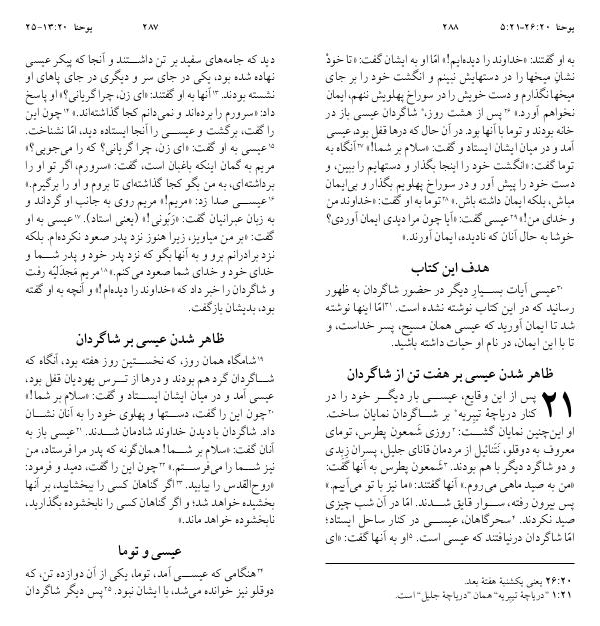 یوحنا ۲۰:‏۱۳-۲۵ ۲۸۷
دید که جامه‌های سفید بر تن داشتند و آنجا که پیکر عیسی
نهاده شده بود، یکی در جای سر و دیگری در جای پاهای او
نشسته بودند. ۱۳آنها به او گفتند: «ای زن، چرا گریانی؟» او پاسخ
داد: «سرورم را برده‌اند و نمی‌دانم کجا گذاشته‌اند.» ۱۴چون این
را گفت، برگشت و عیسی را آنجا ایستاده دید، امّا نشناخت.
۱۵عیسی به او گفت: «ای زن، چرا گریانی؟ که را می‌جویی؟»
مریم به گمان اینکه باغبان است، گفت: «سرورم، اگر تو او را
برداشته‌ای، به من بگو کجا گذاشته‌ای تا بروم و او را برگیرم.»
۱۶عیسی صدا زد: «مریم!» مریم روی به جانب او گرداند و
به زبان عبرانیان گفت: «رَبّونی!» (یعنی استاد). ۱۷عیسی به او
گفت: «بر من میاویز، زیرا هنوز نزد پدر صعود نکرده‌ام. بلکه
نزد برادرانم برو و به آنها بگو که نزد پدر خود و پدر شما و
خدای خود و خدای شما صعود می‌کنم.» ۱۸مریم مَجدَلیّه رفت
و شاگردان را خبر داد که «خداوند را دیده‌ام!» و آنچه به او گفته
بود، بدیشان بازگفت.
ظاهر شدن عیسی بر شاگردان
۱۹شامگاه همان روز، که نخستین روز هفته بود، آنگاه که
شاگردان گرد هم بودند و درها از ترس یهودیان قفل بود،
عیسی آمد و در میان ایشان ایستاد و گفت: «سلام بر شما!»
۲۰چون این را گفت، دستها و پهلوی خود را به آنان نشان
داد. شاگردان با دیدن خداوند شادمان شدند. ۲۱عیسی باز به
آنان گفت: «سلام بر شما! همان‌گونه که پدر مرا فرستاد، من
نیز شما را می‌فرستم.» ۲۲چون این را گفت، دمید و فرمود:
«روح‌القدس را بیابید. ۲۳اگر گناهان کسی را ببخشایید، بر آنها
بخشیده خواهد شد؛ و اگر گناهان کسی را نابخشوده بگذارید،
نابخشوده خواهد ماند.»
عیسی و توما
۲۴هنگامی که عیسی آمد، توما، یکی از آن دوازده تن، که
دوقلو نیز خوانده می‌شد، با ایشان نبود. ۲۵پس دیگر شاگردان
یوحنا ۲۰:‏۲۶-۲۱:‏۵ ۲۸۸
به او گفتند: «خداوند را دیده‌ایم!» امّا او به ایشان گفت: «تا خودْ
نشانِ میخها را در دستهایش نبینم و انگشت خود را بر جای
میخها نگذارم و دست خویش را در سوراخ پهلویش ننهم، ایمان
نخواهم آورد.» ۲۶پس از هشت روز،* شاگردان عیسی باز در
خانه بودند و توما با آنها بود. در آن حال که درها قفل بود، عیسی
آمد و در میان ایشان ایستاد و گفت: «سلام بر شما!» ۲۷آنگاه به
توما گفت: «انگشت خود را اینجا بگذار و دستهایم را ببین، و
دست خود را پیش آور و در سوراخ پهلویم بگذار و بی‌ایمان
مباش، بلکه ایمان داشته باش.» ۲۸توما به او گفت: «خداوند من
و خدای من!» ۲۹عیسی گفت: «آیا چون مرا دیدی ایمان آوردی؟
خوشا به حال آنان که نادیده، ایمان آورند.»
هدف این کتاب
۳۰عیسی آیات بسیارِ دیگر در حضور شاگردان به ظهور
رسانید که در این کتاب نوشته نشده است. ۳۱امّا اینها نوشته
شد تا ایمان آورید که عیسی همان مسیح، پسر خداست، و
تا با این ایمان، در نام او حیات داشته باشید.
ظاهر شدن عیسی بر هفت تن از شاگردان
۲۱ پس از این وقایع، عیسی بار دیگر خود را در
کنار دریاچۀ تیبِریه* بر شاگردان نمایان ساخت.
او این‌چنین نمایان گشت: ۲روزی شَمعون پِطرُس، تومای
معروف به دوقلو، نَتَنائیل از مردمان قانای جلیل، پسران زِبِدی
و دو شاگرد دیگر با هم بودند. ۳شَمعون پطرس به آنها گفت:
«من به صید ماهی می‌روم.» آنها گفتند: «ما نیز با تو می‌آییم.»
پس بیرون رفته، سوار قایق شدند. امّا در آن شب چیزی
صید نکردند. ۴سحرگاهان، عیسی در کنار ساحل ایستاد؛
امّا شاگردان درنیافتند که عیسی است. ۵او به آنها گفت: «ای
۲۰:‏۲۶ یعنی یکشنبۀ هفتۀ بعد.
۲۱:‏۱ ”دریاچۀ تیبِریه“ همان ”دریاچۀ جلیل“ است.